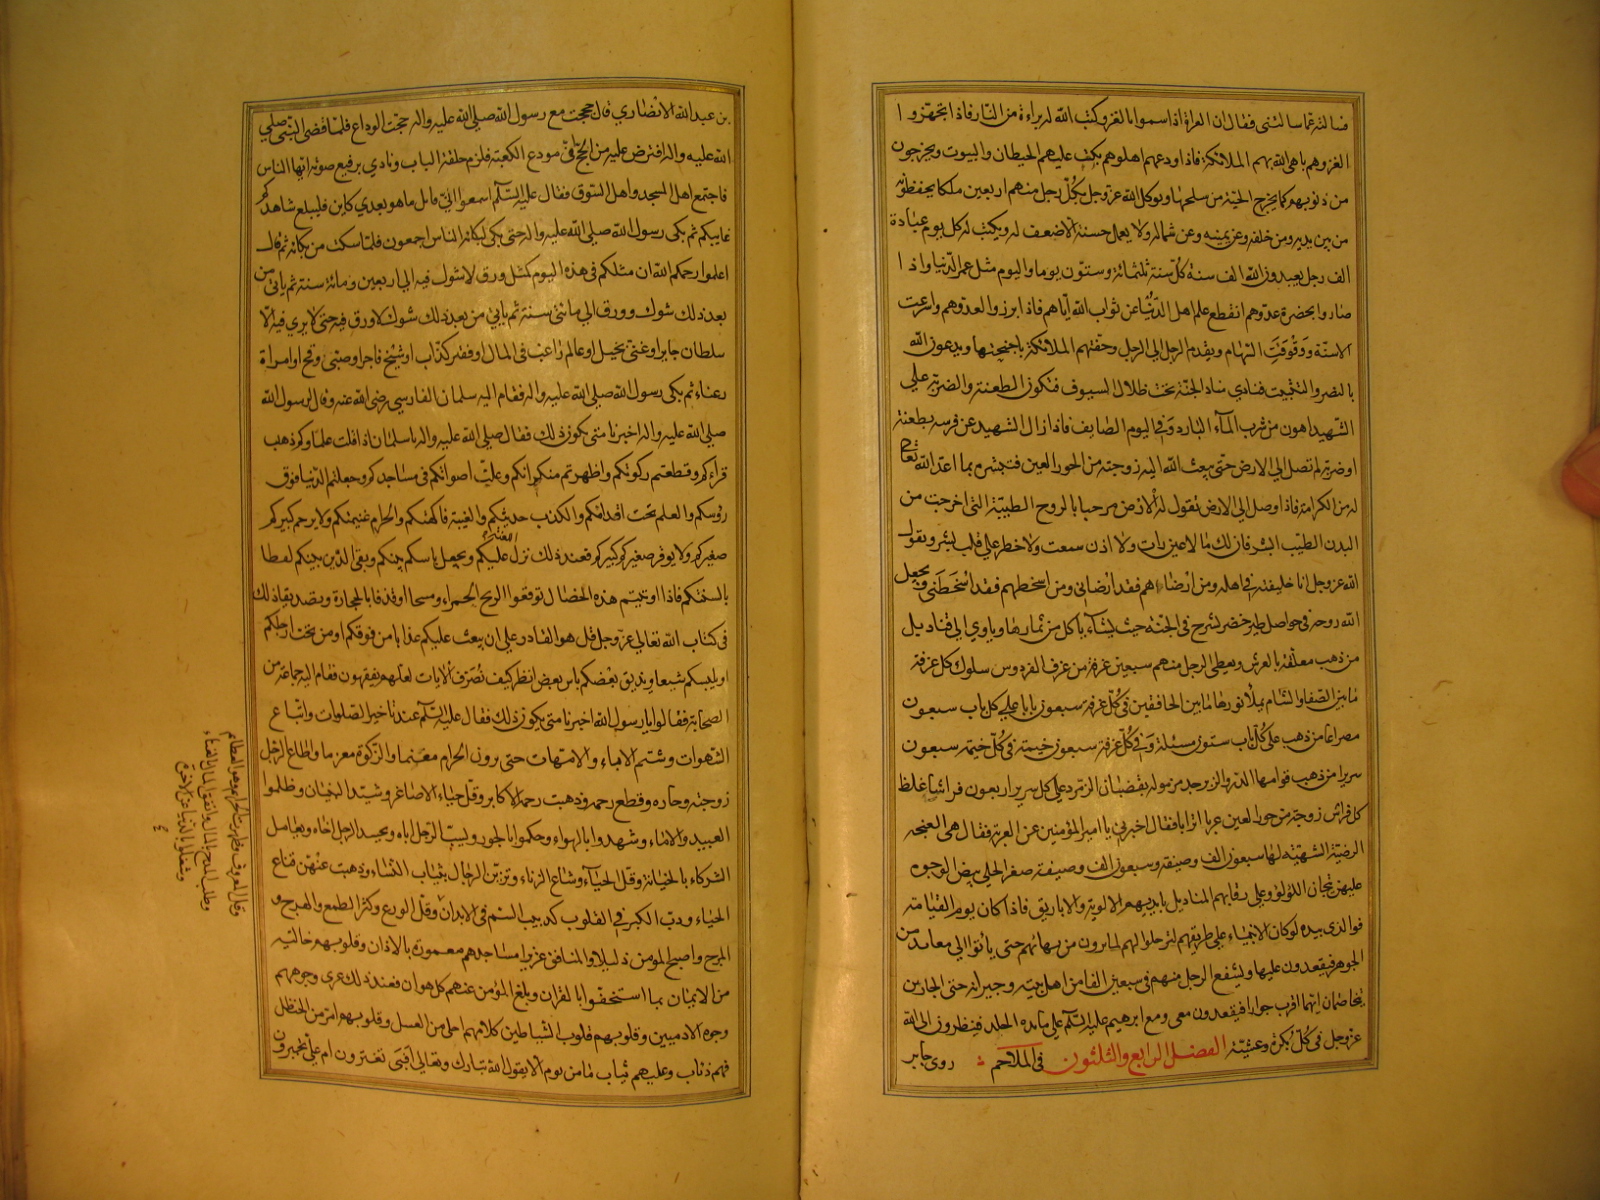 فسالته عما سالتنى فقال ان الغزاة اذا اسموا بالغزو كتب الله لهم براءة من النار فاذا تجهزوا
الغزوهم باهى الله بهم الملائكة فاذا ودعهم اهلوهم بكت عليهم الحيطان والبيوت ويخرجون
من ذنوبهم كما يخرج الحية من سلخها ويوكل الله عز وجل بكل رجل منهم اربعين ملكا يحفظونه
من بين يديه ومن خلفه وعن يمينه وعن شماله ولا يعمل حسنة الا ضعف له ويكتب له كل يوم عبادة
الف رجل يعبدون الله الف سنة كل سنة ثلثمائة وستون يوما واليوم مثل عمر الدنيا واذا
صاروا بحضرة عدوهم انقطع علم اهل الدنيا عن ثواب الله اياهم فاذا برزوا لعدوهم واشرعت
الاسنة وفوقت السهام ويقدم الرجل الى الرجل وحفتهم الملائكة باجنحتها ويدعون الله
بالنصر والتثبيت فنادى مناد الجنة تحت ظلال السيوف فتكون الطعنة والضربة على
الشهيد اهون من شرب الماء البارد فى اليوم الصايف فاذا زال الشهيد عن فرسه بطعنة
او ضربة لم تصل الى الارض حتى يبعث الله اليه زوجته من الحور العين فتبشره بما اعد الله تعالى
له من الكرامة فاذا وصل الى الارض تقول له الارض مرحبا بالروح الطيبة التى اخرجت من
البدن الطيب ابشر فان لك ما لا عين رأت ولا اذن سمعت ولا خطر على قلب بشر ويقول
الله عز وجل انا خليفته فى اهله ومن ارضاهم فقد ارضانى ومن اسخطهم فقد اسخطنى ويجعل
الله روحه فى حواصل طير خضر تسرح فى الجنة حيث يشاء يأكل من ثمارها وياوى الى قناديل
من ذهب معلقة بالعرش ويعطى الرجل منهم سبعين غرفة من غرف الفردوس سلوك كل غرفة
ما بين الصفا والشام يملأ نورها ما بين الخافقين فى كل غرفة سبعون بابا على كل باب سبعون
مصراعا من ذهب على كل باب ستون مسبلة وفى كل غرفة سبعون خيمة فى كل خيمة سبعون
سريرا من ذهب قوامها الدر والزبرجد مرمولة بقضبان الزمرد على كل سرير اربعون فراشا غلظ
كل فراش زوجة من حور العين عربا اترابا فقال اخبرنى يا امير المؤمنين عن العربة فقال هى الغنجة
الرضية الشهية لها سبعون الف وصيفة وسبعون الف وصيفة صفر الحلى بيض الوجوه
عليهن تيجان اللؤلؤ وعلى رقابهم المناديل بايديهم الالوية والاباريق فاذا كان يوم القيامة
فوالذى بيده لو كان الانبياء على طريقهم لترجلوا لهم لما يرون من بهائهم حتى ياتوا الى معايد من
الجوهر فيقعدون عليها ويشفع الرجل منهم فى سبعين الفا من اهل بيته وجيرانه حتى الجارين
يتخاصمان ايهما اقرب جوارا فيقعدون معى ومع ابرهيم عليه السلم على مايدة الخلد فينظرون الى الله
عز وجل فى كل بكرة وعشية الفصل الرابع والثلثون فى الملاحم روى جابر
بن عبد الله الانصارى قال حججت مع رسول الله صلى الله عليه واله حجت الوداع فلما قضى النبى صلى
الله عليه واله افترض عليه من الحج اتى مودع الكعبة فلزم حلقة الباب ونادى برفيع صوته ايها الناس
فاجتمع اهل المسجد واهل السوق فقال عليه السلم اسمعوا انى قائل ما هو بعدى كاين فليبلغ شاهدكم
غايبكم ثم بكى رسول الله صلى الله عليه واله حتى بكى لبكائه الناس اجمعون فلما سكت من بكائه ثم قال
اعلموا رحمكم الله ان مثلكم فى هذه اليوم كمثل ورق لا شوك فيه الى اربعين ومائة سنة ثم ياتى من
بعد ذلك شوك وورق الى مائتى سنة ثم ياتى من بعد ذلك شوك لا ورق فيه حتى لا يرى فيه الا
سلطان جاير او غنى بخيل او عالم راغب فى المال او فقير كذاب او شيخ فاجر او صبى وقح او امراة
رعناء ثم بكى رسول الله صلى الله عليه واله فقام اليه سلمان الفارسى رضى الله عنه وقال يا رسول الله
صلى الله عليه واله اخبرنا متى يكون ذلك فقال صلى الله عليه واله يا سلمان اذا قلت علماوكم وذهب
قراءكم وقطعتم زكوتكم واظهرتم منكراتكم وعلت اصواتكم فى مساجدكم وجعلتم الدنيا فوق
رؤسكم والعلم تحت اقدامكم والكذب حديثكم والغيبة فاكهتكم والحرام غنيمتكم ولا يرحم كبيركم
صغيركم ولا يوقر صغيركم كبيركم فعند ذلك نزل اللعنة عليكم ويجعل باسكم بينكم وبقى الدين بينكم لفظا
بالسنتكم فاذا اوتيتم هذه الخصال توقعوا الريح الحمراء ومسخا او قذفا بالحجارة وتصديق ذلك
فى كتاب الله تعالى عز وجل قل هو القادر على ان يبعث عليكم عذابا من فوقكم او من تحت ارجلكم
او يلبسكم شيعا ويذيق بعضكم باس بعض انظر كيف نصرف الايات لعلهم يفقهون فقام اليه جماعة من
الصحابة فقالوا يا رسول الله اخبرنا متى يكون ذلك فقال عليه السلم عند تاخير الصلوات واتباع
الشهوات وشتم الاباء والامهات حتى يرون الحرام مغنما والزكوة مغرما واطاع الرجل
زوجته وجفا جاره وقطع رحمه وذهبت رحمة الاكابر وقل حياء الاصاغر وشيد البنيان وظلموا
العبيد والاماء وشهدوا بالهواء وحكموا بالجور ويسب الرجل اباه ويحسد الرجل اخاه ويعامل
الشركاء بالخيانة وقل الحياء وشاع الزناء وتزين الرجال بثياب النساء وذهبت عنهن قناع
الحياء ودب الكبر فى القلوب كدبيب السم فى الابدان وقل الورع وكثر الطمع والهرج و
المرج واصبح المومن ذليلا والمنافق عزيزا مساجدهم معمورة بالاذان وقلوبهم خالية
من الايمان بما استخفوا بالقران وبلغ المؤمن عنهم كل هوان فعند ذلك ترى وجوههم
وجوه الادميين وقلوبهم قلوب الشياطين كلامهم احلى من العسل وقلوبهم امر من الحنظل
فهم ذئاب وعليهم ثياب ما من يوم الا يقول الله تبارك وتعالى افبى تغترون ام على تجترون
وقل المعروف وظهرت الجرايم وهو العظايم
وطلب المدح بالمال وانفقوا المال بالغناء
وشغلوا بالدنيا عن الاخرة